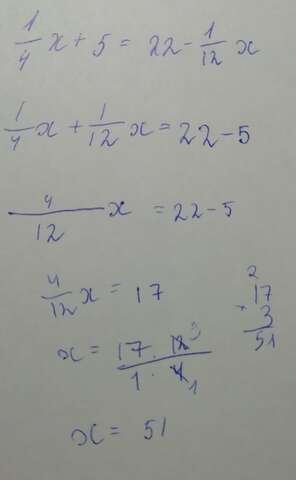 1/4 x + 5 = 22 - 1/12 x
1/4 x + 1/12 x = 22 - 5
4/12 x = 22 - 5
4/12 x = 17
x = 17 · 12 3 / 1 · 4 1
x = 51
2
17
· 3
51